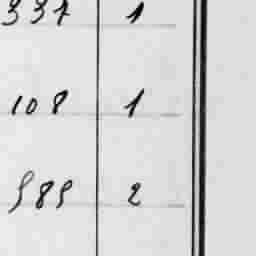 337 1
108 1
989 2